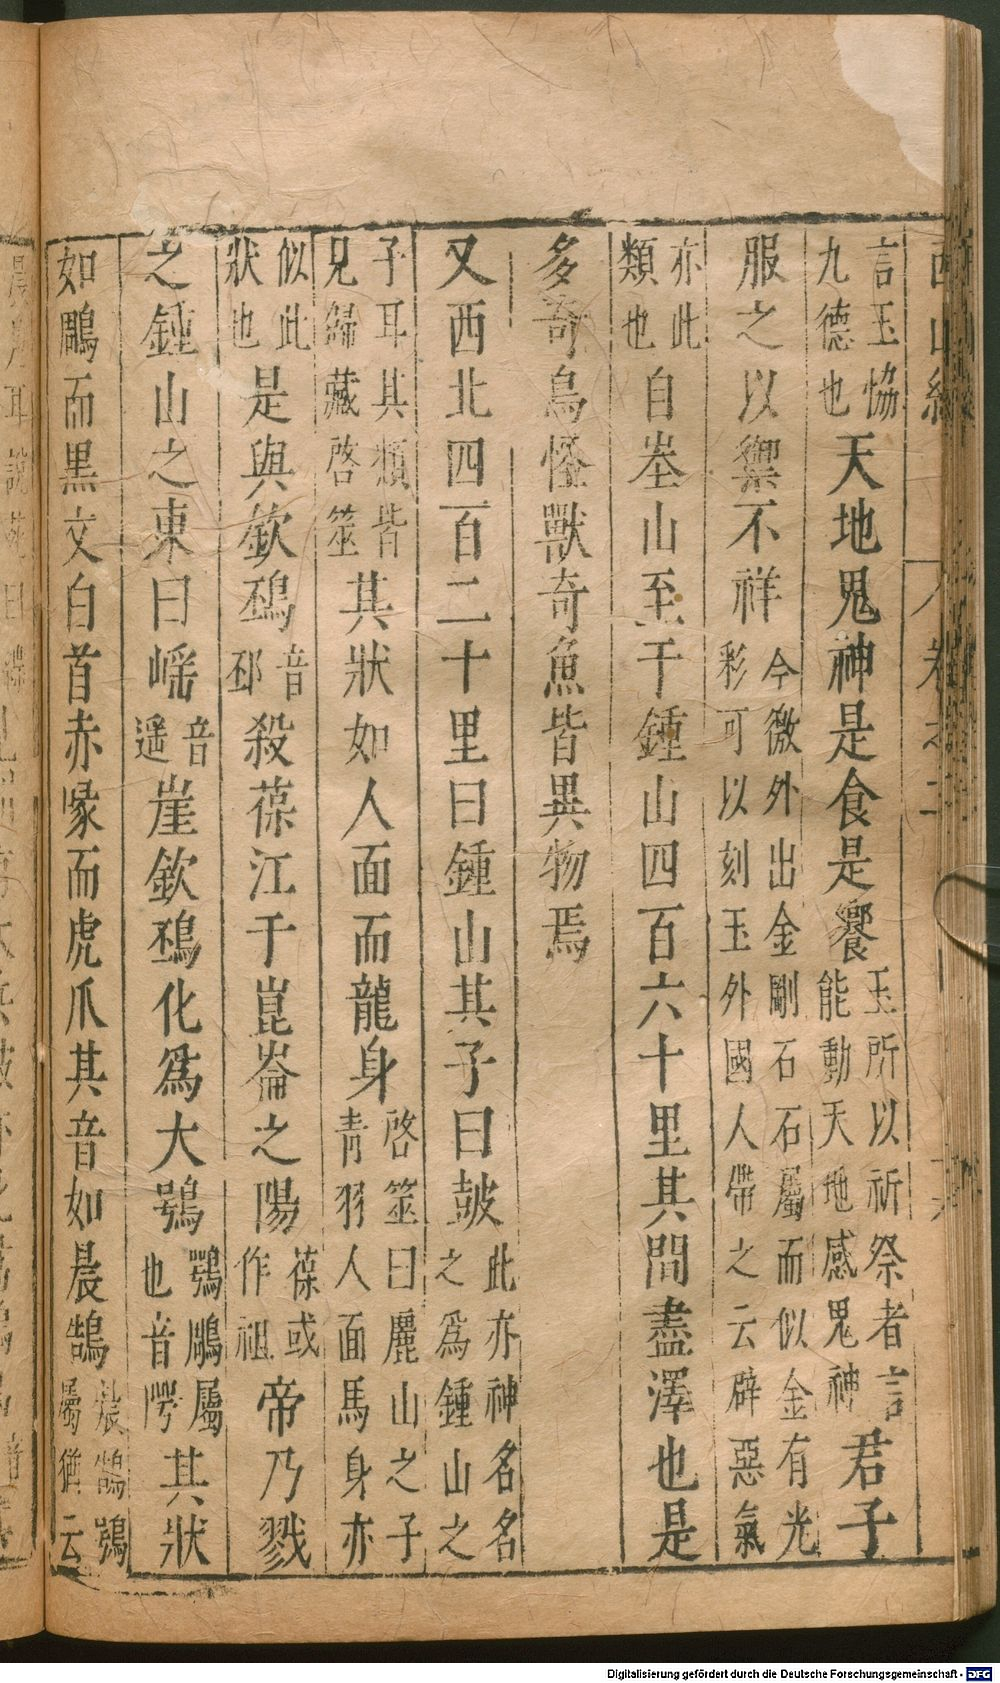 西山經 卷之二
言玉協九德也天地鬼神是食是饗玉所以祈祭者言能動天地感鬼神君子
服之以禦不祥今徼外出金剛石石屬而似金有光彩可以刻玉外國人帶之云辟惡氣
亦此類也自峚山至于鍾山四百六十里其間盡澤也是
多奇鳥怪獸奇魚皆異物焉
又西北四百二十里曰鍾山其子曰鼓此亦神名名之爲鍾山之
子耳其類皆見歸藏啓筮其狀如人面而龍身啓筮曰麗山之子青羽人面馬身亦
似此狀也是與欽䲹音邳殺葆江于崑崙之陽葆或作祖帝乃戮
之鍾山之東曰㟱音遥崖欽䲹化爲大鶚鶚鵰屬也音愕其狀
如鵰而黒文白首赤喙而虎爪其音如晨鵠晨鵠鶚屬猶云
Digitalisierung gefördert durch die Deutsche Forschungsgemeinschaft - DFG